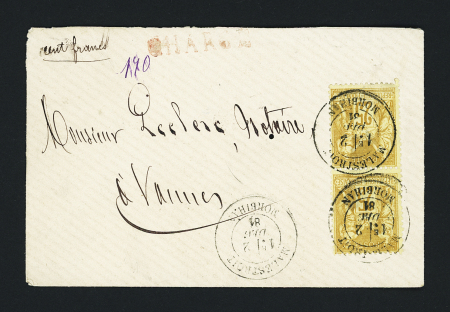 cent francs
CHARGÉ
120
Monsieur Leclerc, Notaire
à Vannes
MALESTROIT
MORBIHAN
81
MALESTROIT
MORBIHAN
81
MALESTROIT
2
81
MORBIHAN